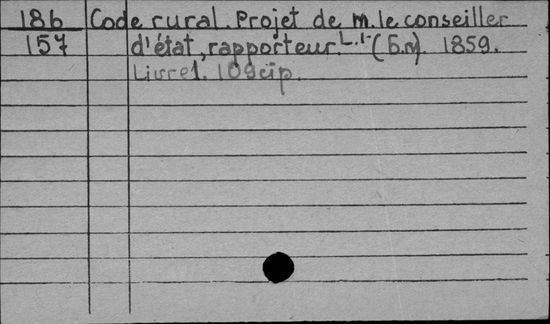 186 Code rural. Projet de m. le conseiller
157 d'état, rapporteur. L.1- (Б.м). 1859.
Livre 1. 109 стр.